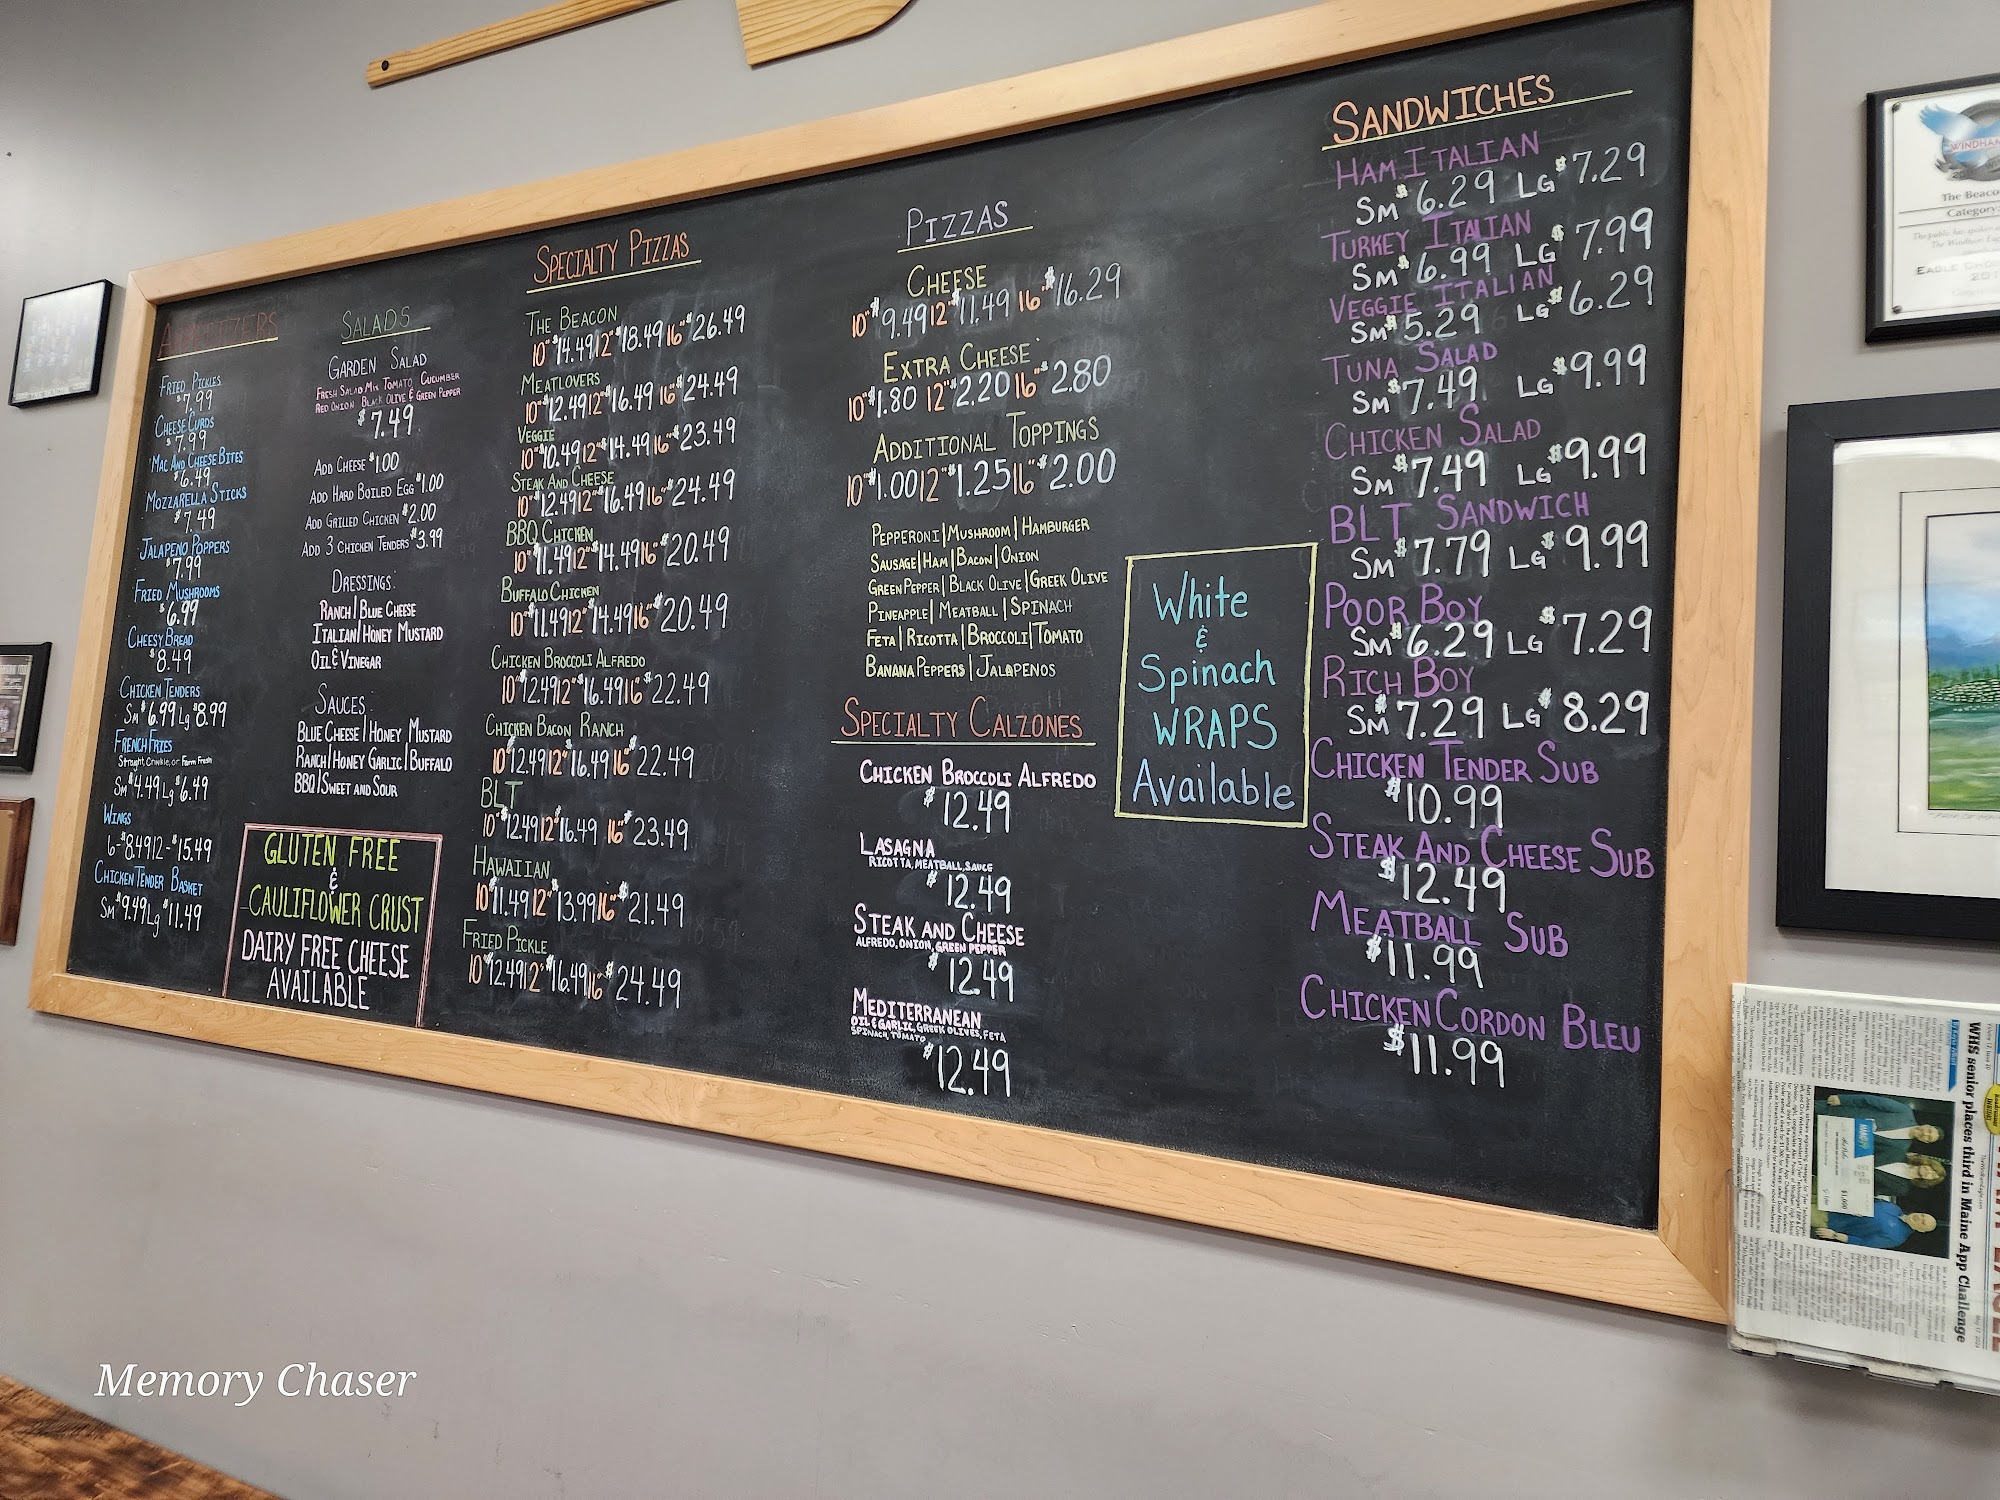 APPETIZERS
FRIED PICKLES
$7.99
CHEESE CURDS
$7.99
MAC AND CHEESE BITES
$6.49
MOZZARELLA STICKS
$7.49
JALAPENO POPPERS
$7.99
FRIED MUSHROOMS
$6.99
CHEESY BREAD
$8.49
CHICKEN TENDERS
SM $6.99 LG $8.99
FRENCH FRIES
Straight, Crinkle, or Farm Fresh
SM $4.49 LG $6.49
WINGS
6-$8.49 12-$15.49
CHICKEN TENDER BASKET
SM $9.49 LG $11.49
SALADS
GARDEN SALAD
FRESH SALAD MIX TOMATO CUCUMBER
RED ONION BLACK OLIVE & GREEN PEPPER
$7.49
ADD CHEESE $1.00
ADD HARD BOILED EGG $1.00
ADD GRILLED CHICKEN $2.00
ADD 3 CHICKEN TENDERS $3.99
DRESSINGS:
RANCH|BLUE CHEESE
ITALIAN|HONEY MUSTARD
OIL & VINEGAR
SAUCES
BLUE CHEESE|HONEY MUSTARD
RANCH|HONEY GARLIC|BUFFALO
BBQ|SWEET AND SOUR
GLUTEN FREE
&
CAULIFLOWER CRUST
DAIRY FREE CHEESE
AVAILABLE
SPECIALTY PIZZAS
THE BEACON
10" $14.49 12" $18.49 16" $26.49
MEATLOVERS
10" $12.49 12" $16.49 16" $24.49
VEGGIE
10" $10.49 12" $14.49 16" $23.49
STEAK AND CHEESE
10" $12.49 12" $16.49 16" $24.49
BBQ CHICKEN
10" $11.49 12" $14.49 16" $20.49
BUFFALO CHICKEN
10" $11.49 12" $14.49 16" $20.49
CHICKEN BROCCOLI ALFREDO
10" $12.49 12" $16.49 16" $22.49
CHICKEN BACON RANCH
10" $12.49 12" $16.49 16" $22.49
BLT
10" $12.49 12" $16.49 16" $23.49
HAWAIIAN
10" $11.49 12" $13.99 16" $21.49
FRIED PICKLE
10" $12.49 12" $16.49 16" $24.49
PIZZAS
CHEESE
10" $9.49 12" $11.49 16" $16.29
EXTRA CHEESE
10" $1.80 12" $2.20 16" $2.80
ADDITIONAL TOPPINGS
10" $1.00 12" $1.25 16" $2.00
PEPPERONI|MUSHROOM|HAMBURGER
SAUSAGE|HAM|BACON|ONION
GREEN PEPPER|BLACK OLIVE|GREEK OLIVE
PINEAPPLE|MEATBALL|SPINACH
FETA|RICOTTA|BROCCOLI|TOMATO
BANANA PEPPERS|JALAPENOS
SPECIALTY CALZONES
CHICKEN BROCCOLI ALFREDO
$12.49
LASAGNA
RICOTTA, MEATBALL, SAUCE
$12.49
STEAK AND CHEESE
ALFREDO, ONION, GREEN PEPPER
$12.49
MEDITERRANEAN
OIL & GARLIC, GREEK OLIVES, FETA
SPINACH, TOMATO
$12.49
White
&
Spinach
WRAPS
Available
SANDWICHES
HAM ITALIAN
SM $6.29 LG $7.29
TURKEY ITALIAN
SM $6.99 LG $7.99
VEGGIE ITALIAN
SM $5.29 LG $6.29
TUNA SALAD
SM $7.49 LG $9.99
CHICKEN SALAD
SM $7.49 LG $9.99
BLT SANDWICH
SM $7.79 LG $9.99
POOR BOY
SM $6.29 LG $7.29
RICH BOY
SM $7.29 LG $8.29
CHICKEN TENDER SUB
$10.99
STEAK AND CHEESE SUB
$12.49
MEATBALL SUB
$11.99
CHICKEN CORDON BLEU
$11.99
WINDHAM
The Beaco
Category:
WHS senior places third in Maine App Challenge
Memory Chaser